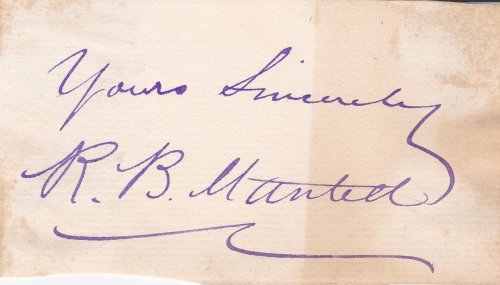 Yours Sincerely
R. B. Mantell